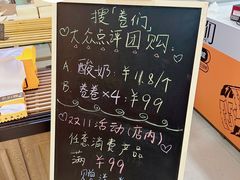 搜"卷们"
大众点评团购:
A. 酸奶: ¥11.8/个
B. 卷卷×4: ¥99
2211活动(店内)
任意消费产品
满 ¥99